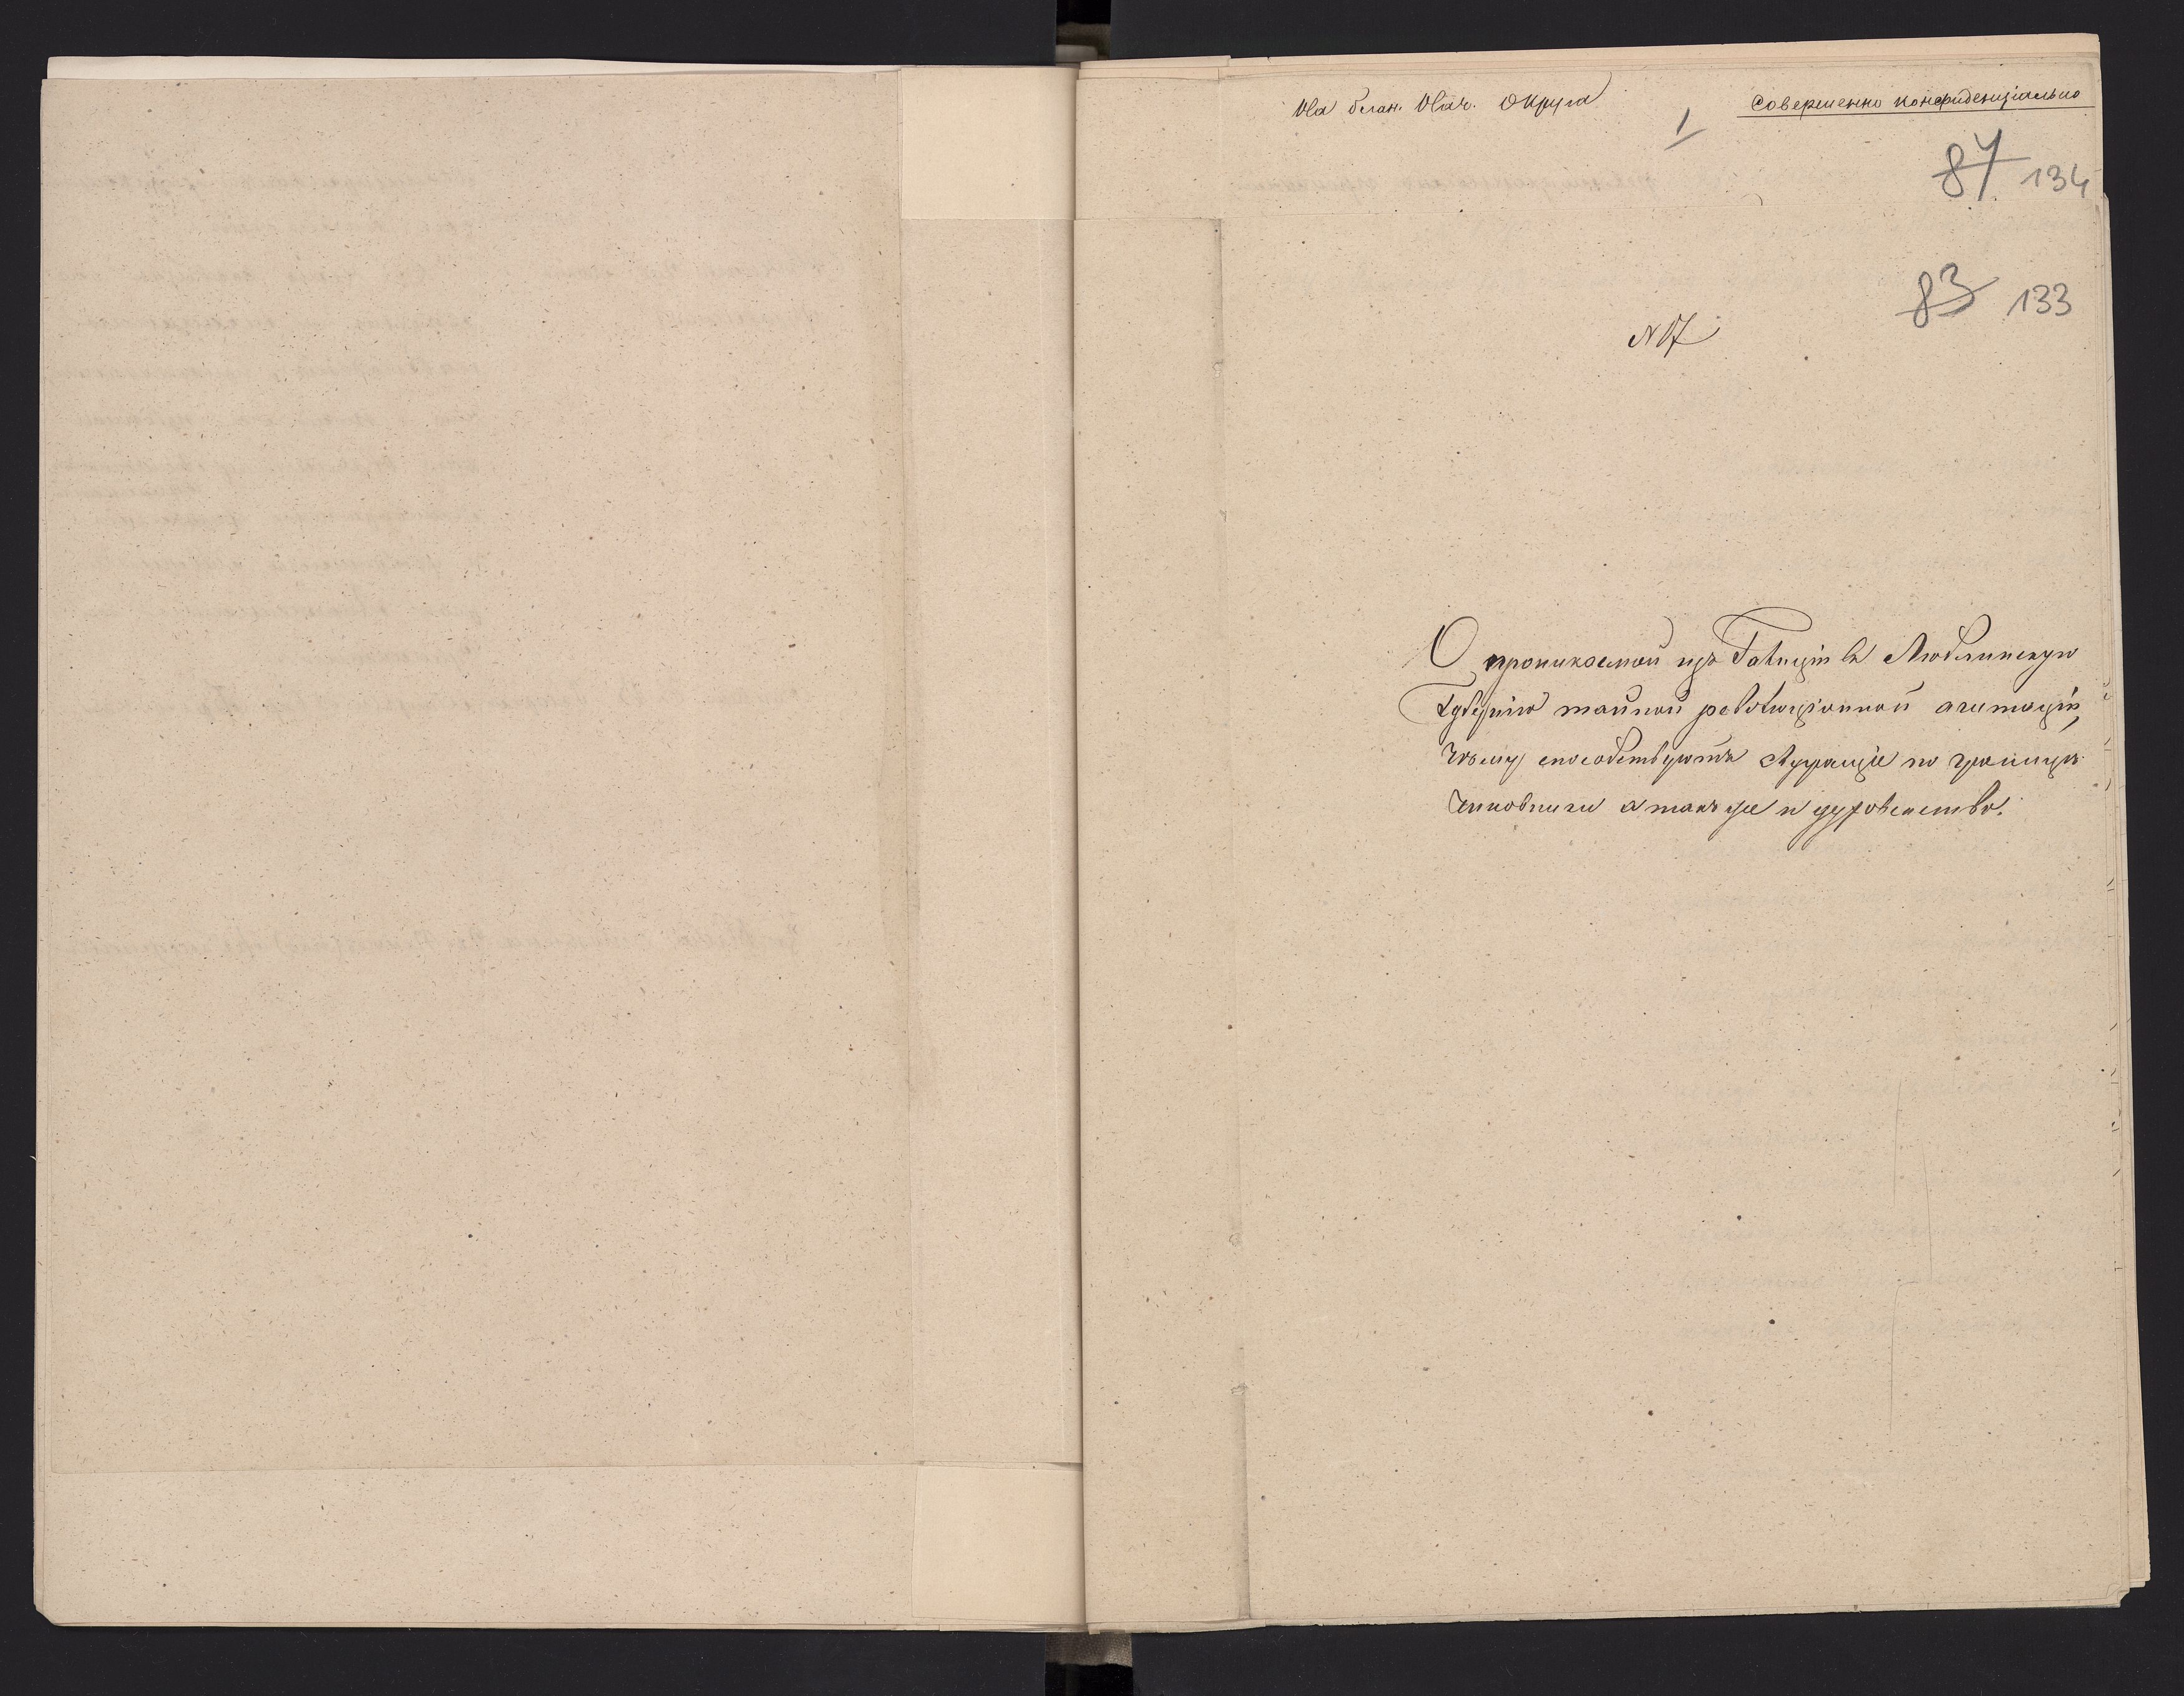 На блан. Нач. Округа
Совершенно конфиденціально
1
84 134
83 133
N 17
О проникаемой изъ Галиціи въ Люблинскую
Губернію тайной революціонной агитаціи,
чему способствуютъ служащіе по границѣ
чиновники а также и духовенство.